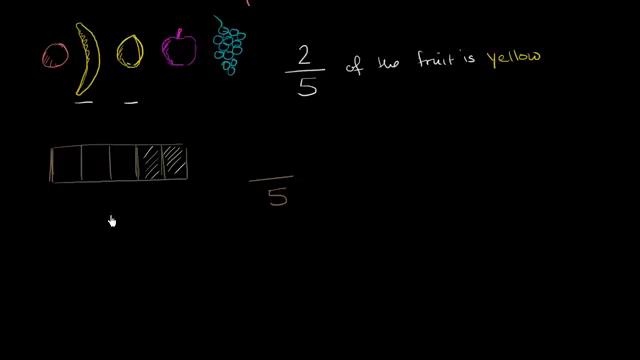 2/5 of the fruit is yellow
/5